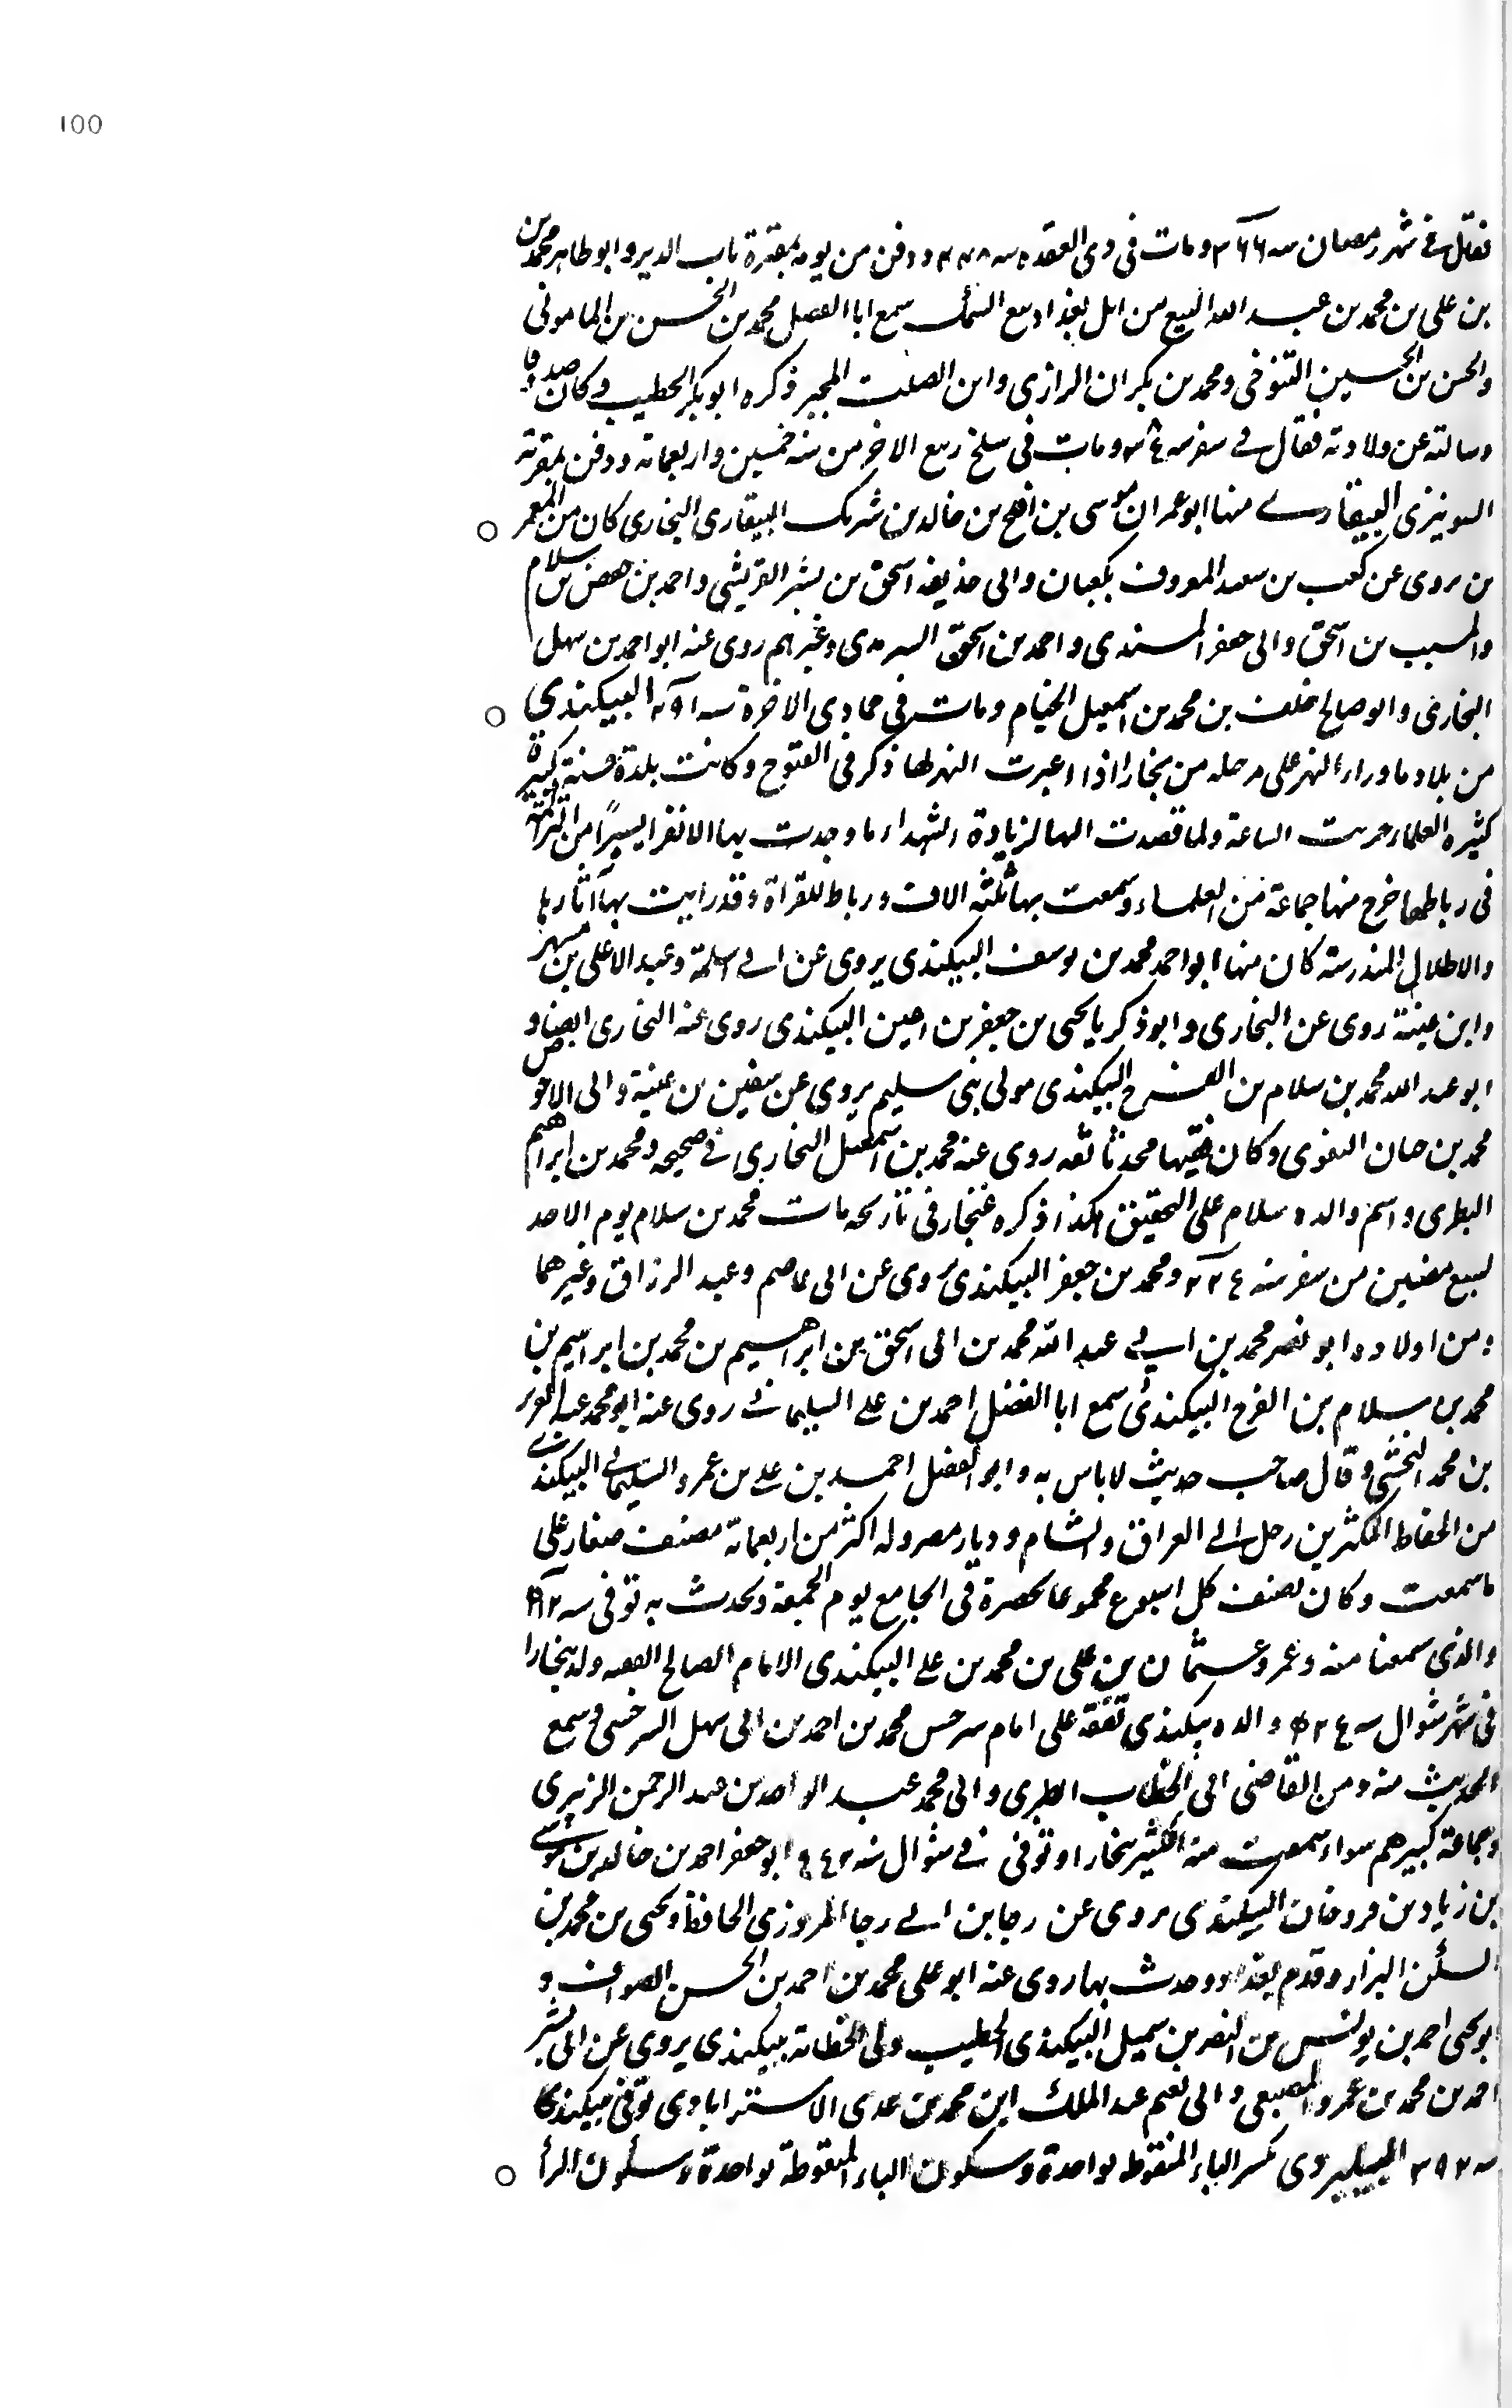 100
فقال في شهر رمضان سـ ٣٦٦ ومات في ذى القعدة سـ ٤٣٨ ودفن من يومه بمقبرة باب الدير وابو طاهر محمد بن
بن على بن محمد بن عبد الله البيع من اهل بغداد بيع السمك سمع ابا الفضل محمد بن الحسن بن المامونى
والحسن بن الحسين التنوخى ومحمد بن بكران الرازى وابن الصلت المجبر ذكره ابو بكر الخطيب وكان صدوقا
وسالته عن ولادته فقال في صفر سـ ومات في سلخ ربيع الاخر من سنه خمسين واربعمائة ودفن بمقبرة
الشونيزى البيقارى منها ابو عمران موسى بن افلح بن خالد بن شريك البيقارى البخارى كان من المعمر
ين يروى عن كعب بن سعيد المعروف بكعبان وابى حذيفه اسحق بن بشر القريشى واحمد بن حفص بن سلام
والمسيب بن اسحق وابى جعفر المسندى واحمد بن اسحق السرمارى وغيرهم روى عنه ابو احمد بن سهل
البخارى وابو صالح خلف بن محمد بن اسمعيل الخيام ومات في جمادى الاخرة سـ ٢٩١ البيكندى
من بلاد ماوراء النهر على مرحله من بخارا اذا اعبرت النهر لها ذكر في الفتوح وكانت بلدة حسنة كبيرة
كثيره العلماء خربت الساعة ولما قصدت اليها لزيارة الشهداء ما وجدت بها الا نفرا يسيرًا من التركمان
في رباطها خرج منها جماعة من العلماء وسمعت بها ثلثه الاف ورباط للقراة وقد رايت بها آثارها
والاطلال المندرسة كان منها ابو احمد محمد بن يوسف البيكندى يروى عن ابى اسلمة وعبد الاعلى بن مسهر
وابن عيينة روى عن البخارى وابو ذكريا يحيى بن جعفر بن اعين البيكندى روى عنه البخارى ايضا و
ابو عبد الله محمد بن سلام بن الفرج البيكندى مولى بنى سليم يروى عن سفين بن عيينة وابى الاحوص
محمد بن حيان البغوى وكان فقيها محدثا ثقه روى عنه محمد بن اسمعيل البخارى في صحيحه ومحمد بن ابراهيم
البطرى واسم والده سلام على التحقيق هكذا ذكره غنجار في تاريخه مات محمد بن سلام يوم الاحد
لسبع مضين من صفر سنه ٢٢٤ ومحمد بن جعفر البيكندى يروى عن ابى عاصم وعبد الرزاق وغيرهما
ومن اولاده ابو نصر محمد بن ابى عبد الله محمد بن ابى اسحق بن ابراهيم بن محمد بن ابراهيم بن
محمد بن سلام بن الفرج البيكندى سمع ابا الفضل احمد بن على السليمانى روى عنه ابو محمد عبد العزيز
بن محمد النخشبى وقال صاحب حديث لا باس به وابو الفضل احمد بن على بن عمرو السليمانى البيكندى
من الحفاظ المكثرين رحل الى العراق والشام وديار مصر وله اكثر من اربعمائة مصنف صغار على
ما سمعت وكان يصنف كل اسبوع مجموعا يحضره في الجامع يوم الجمعة ويحدث به توفى سـ
والذى سمعنا منه وعمرو عثمان بن على بن محمد بن على البيكندى الامام الصالح الفقيه ولد ببخارا
في شهر شوال سـ والده بيكندى تفقه على امام سرخس محمد بن احمد بن ابى سهل السرخسى وسمع
الحديث منه ومن القاضى ابى الخطاب الطبرى وابى محمد عبد الواحد بن عبد الرحمن الزبيرى
وجماعة كبيرهم سواء سمعت منه الكثير ببخارا وتوفى في شوال سنه ابو جعفر احمد بن خالد بن موسى
بن زياد بن فروخان البيكندى يروى عن رجا بن ابى رجا المروزى الحافظ ويحيى بن محمد بن
السكن البزار وقدم بغداد وحدث بها روى عنه ابو على محمد بن احمد بن الحسن الصواف و
ابو يحيى احمد بن يونس بن النضر بن سميل البيكندى الخطيب ولى الخطابة ببيكندى يروى عن ابى بشر
احمد بن محمد بن عمرو المصعبى وابى نعيم عبد الملك ابن محمد بن عدى الاستراباذى توفى ببيكند
سـ ٣٩٢ البيليردى بكسر الباء المنقوطه بواحدة وسكون الياء المنقوطة بواحدة وسكون الرا